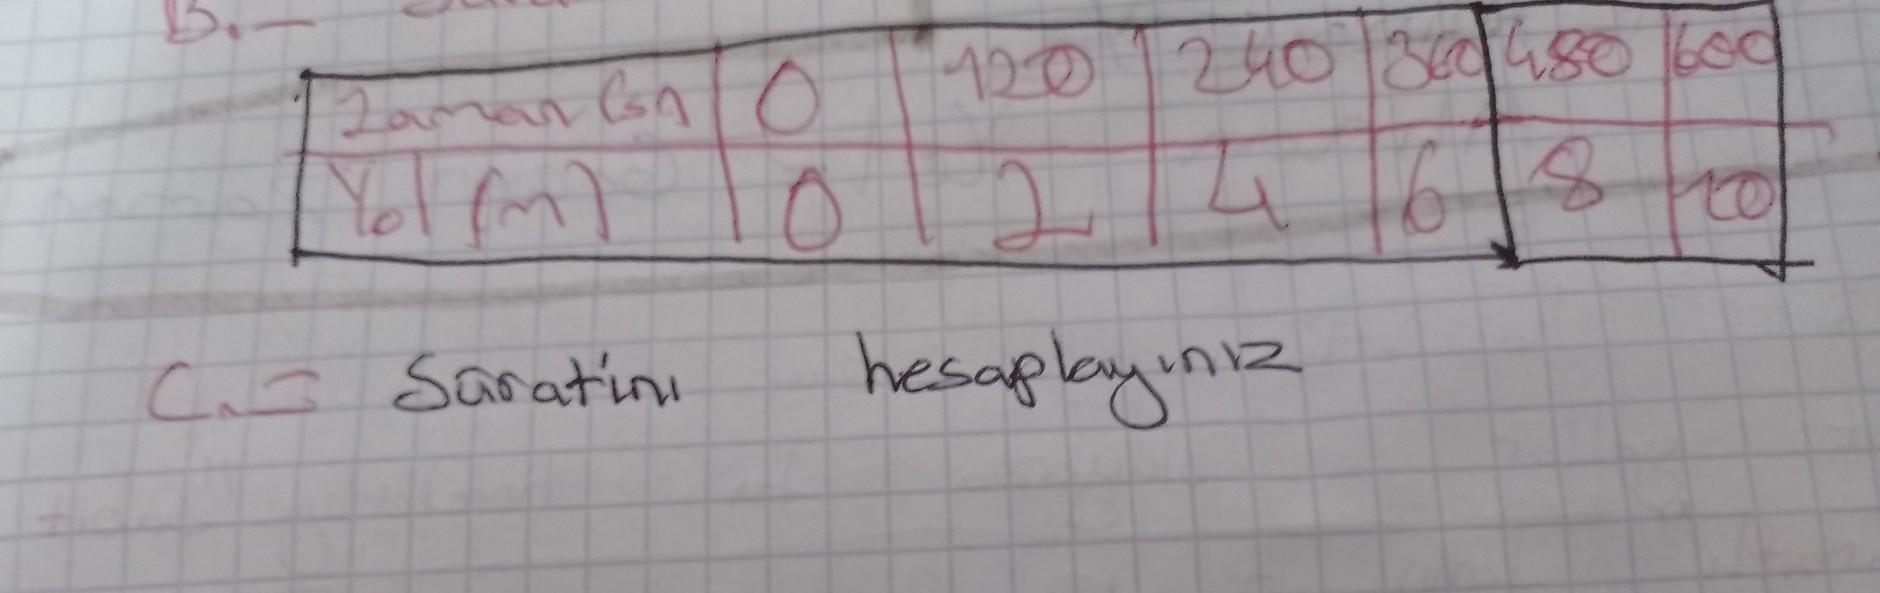 B.-
Zaman (sn) 0 120 240 360 480 600
Yol (m) 0 2 4 6 8 10
C.= Süratini hesaplayınız